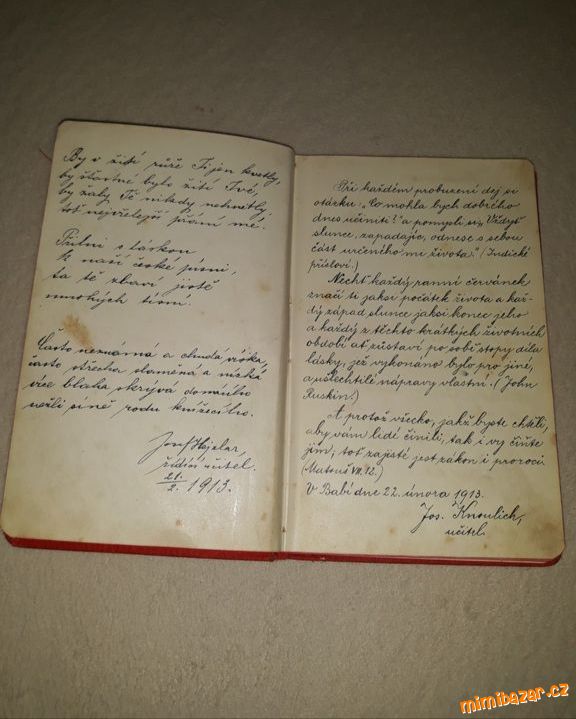 By v žití růže Ti jen kvetly,
by šťastné bylo žití Tvé,
by žaly Tě nikdy nehnětly,
toť nejvřelejší přání mé.
Přilni s láskou
k naší české písni,
ta tě zbaví jistě
mnohých tísní.
Často neznámá a chudá víska,
často střecha slaměná a nízká
více blaha skrývá domácího
nežli síně rodu knížecího.
Josef Hejclar,
řídící učitel.
21./2. 1913.
Při každém probuzení dej si
otázku: „Co mohla bych dobrého
dnes učiniti?" a pomysli si: „Vždyť
slunce, zapadajíc, odnese s sebou
část určeného mi života." (Indické
přísloví.)
Nechť každý ranní červánek
značí ti jaksi počátek života a kaž-
dý západ slunce jaksi konec jeho
a každý z těchto krátkých životních
období ať zůstaví po sobě stopy díla
lásky, jež vykonáno bylo pro jiné,
a ušlechtilé nápravy vlastní. (John
Ruskin.)
A protož všecko, jakž byste chtěli,
aby vám lidé činili, tak i vy čiňte
jim; toť zajisté jest zákon i proroci.
(Matouš VII. 12.)
V Babí dne 22. února 1913.
Jos. Knoulich,
učitel.
mimibazar.cz